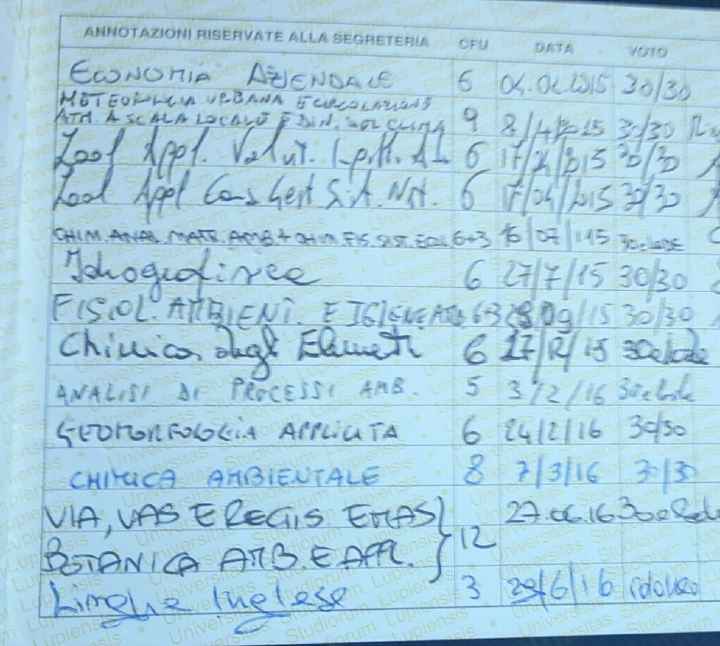 ANNOTAZIONI RISERVATE ALLA SEGRETERIA CFU DATA VOTO
ECONOMIA AZIENDALE 6 04.02.2015 30/30
METEOROLOGIA URBANA E CIRCOLAZIONE
ATM A SCALA LOCALE E DIN. DEL CLIMA 9 8/4/2015 30/30
Zool Appl. Valut. Imp. 6 17/04/2015 30/30
Zool Appl Cons Gest S.A. Nat. 6 17/04/2015 30/30
CHIM. ANAL. MATR. AMB + CHIM. FIS. SIST. ECOL 6+3 16/07/15 30 e LODE
Idrogeofisica 6 27/7/15 30/30
FISIOL. AMBIENT. E IGIENE AMB 6+3 28/09/15 30/30
Chimica degli Elementi 6 17/12/15 30 e lode
ANALISI DI PROCESSI AMB. 5 3/2/16 30 e lode
GEOMORFOLOGIA APPLICATA 6 24/2/16 30/30
CHIMICA AMBIENTALE 8 7/3/16 30/30
VIA, VAS E REGIS EMAS 27.06.16 30 e lode
BOTANICA AMB. E APPL. } 12
Lingua Inglese 3 29/6/16 idoneo